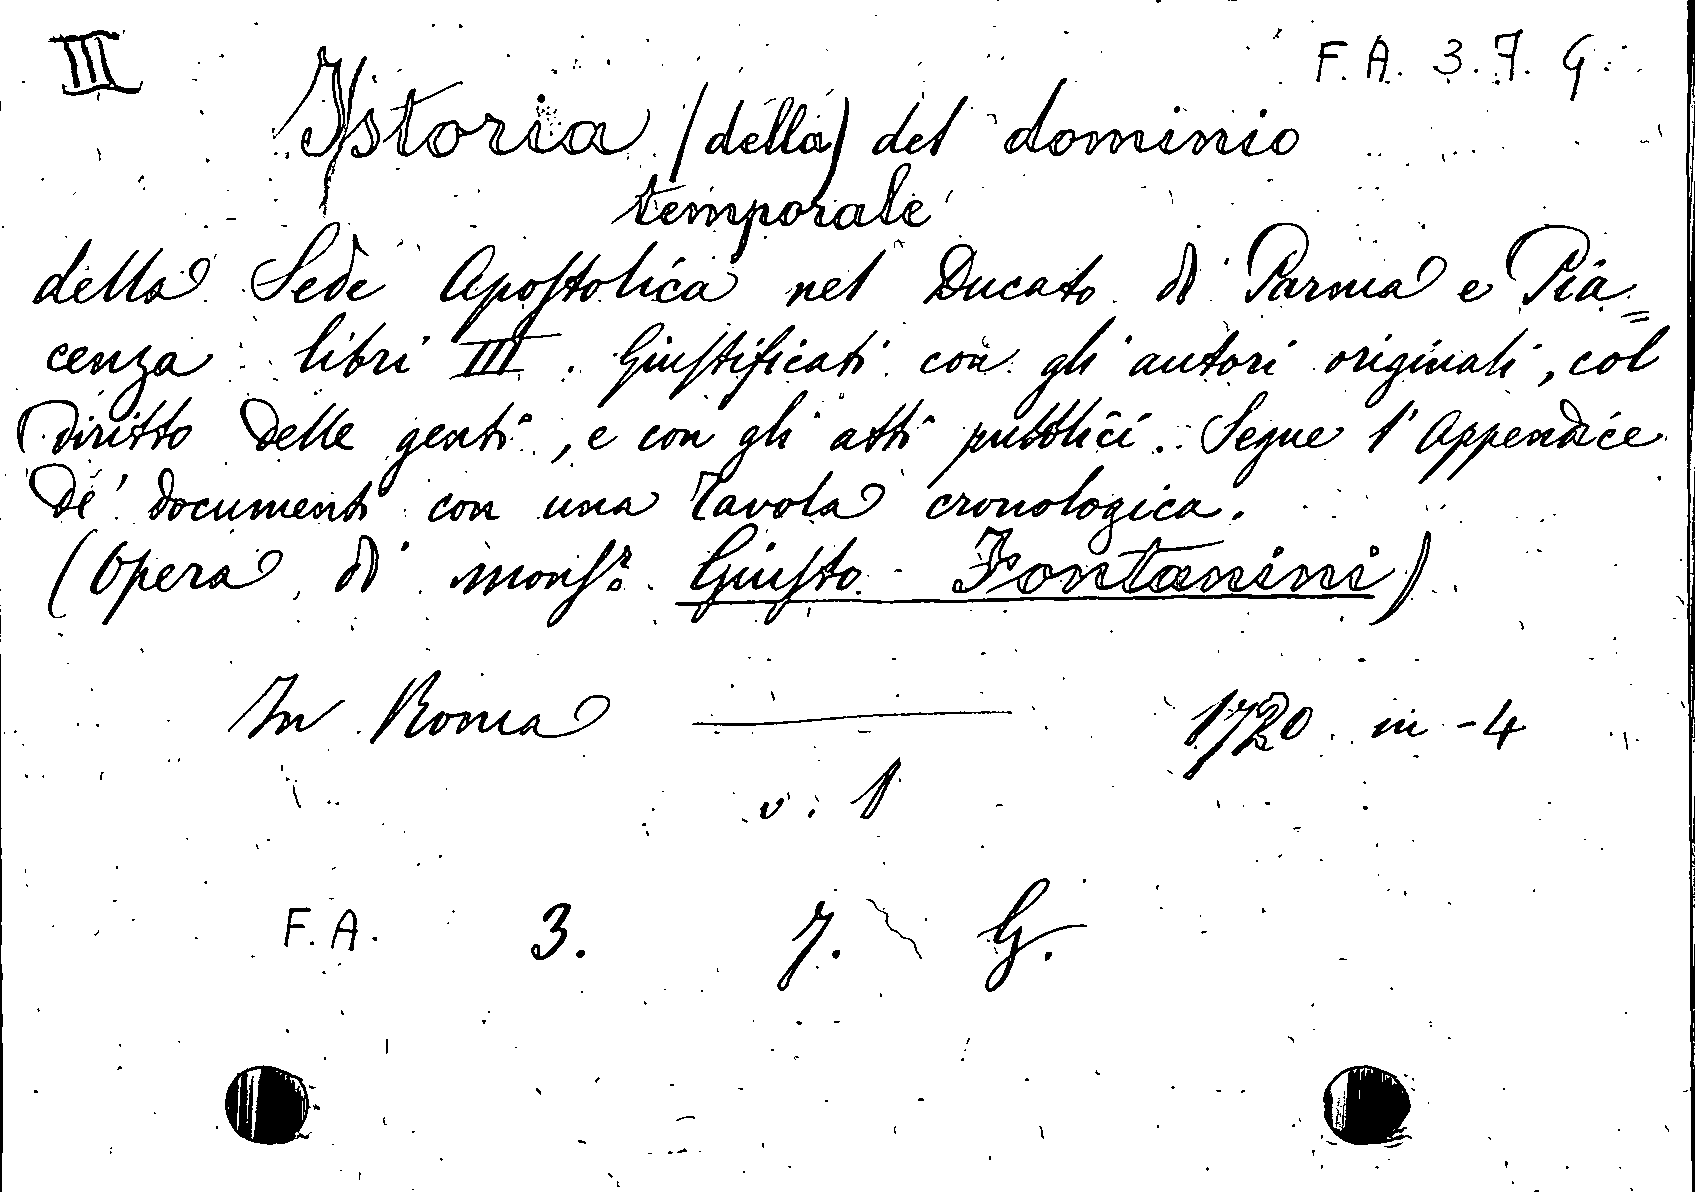 III
F. A. 3. 7. G
Istoria (della) del dominio
temporale
della Sede Apostolica nel Ducato di Parma e Pia=
cenza libri III. Giustificati con gli autori originali, col
diritto delle genti, e con gli atti pubblici. Segue l'Appendice
de' documenti con una Tavola cronologica.
(Opera di monsr. Giusto Fontanini)
In Roma — 1720 in-4
v. 1
F. A. 3. 7. G.